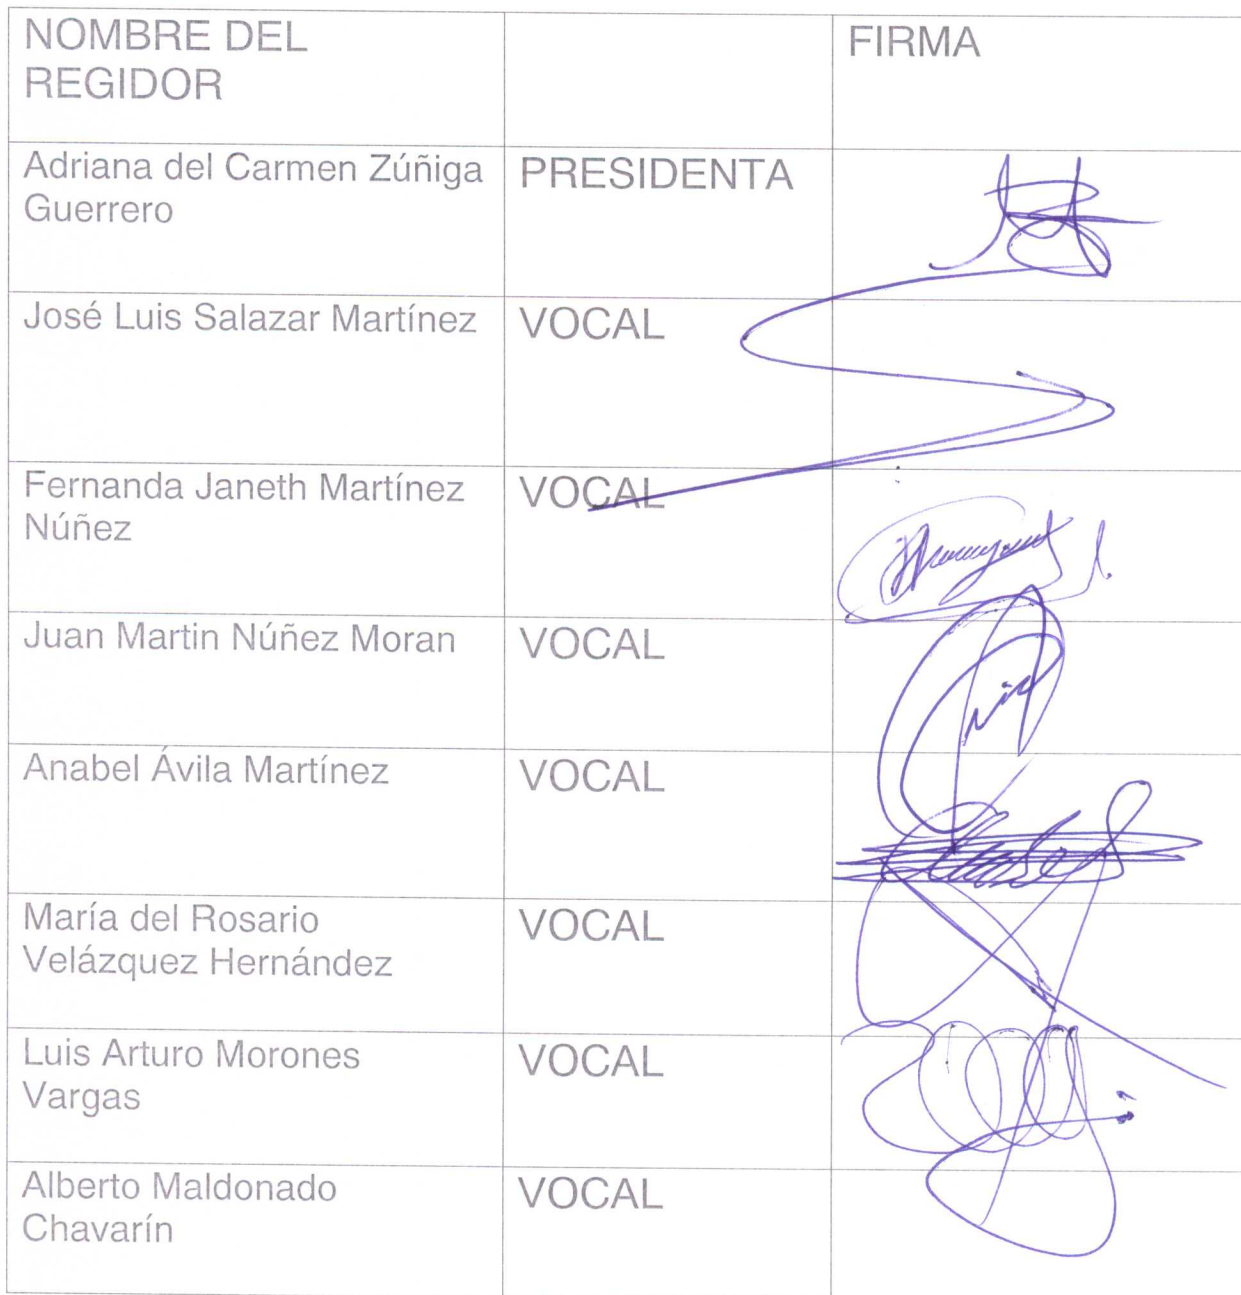 NOMBRE DEL
REGIDOR
FIRMA
Adriana del Carmen Zúñiga
Guerrero
PRESIDENTA
José Luis Salazar Martínez
VOCAL
Fernanda Janeth Martínez
Núñez
VOCAL
Juan Martin Núñez Moran
VOCAL
Anabel Ávila Martínez
VOCAL
María del Rosario
Velázquez Hernández
VOCAL
Luis Arturo Morones
Vargas
VOCAL
Alberto Maldonado
Chavarín
VOCAL